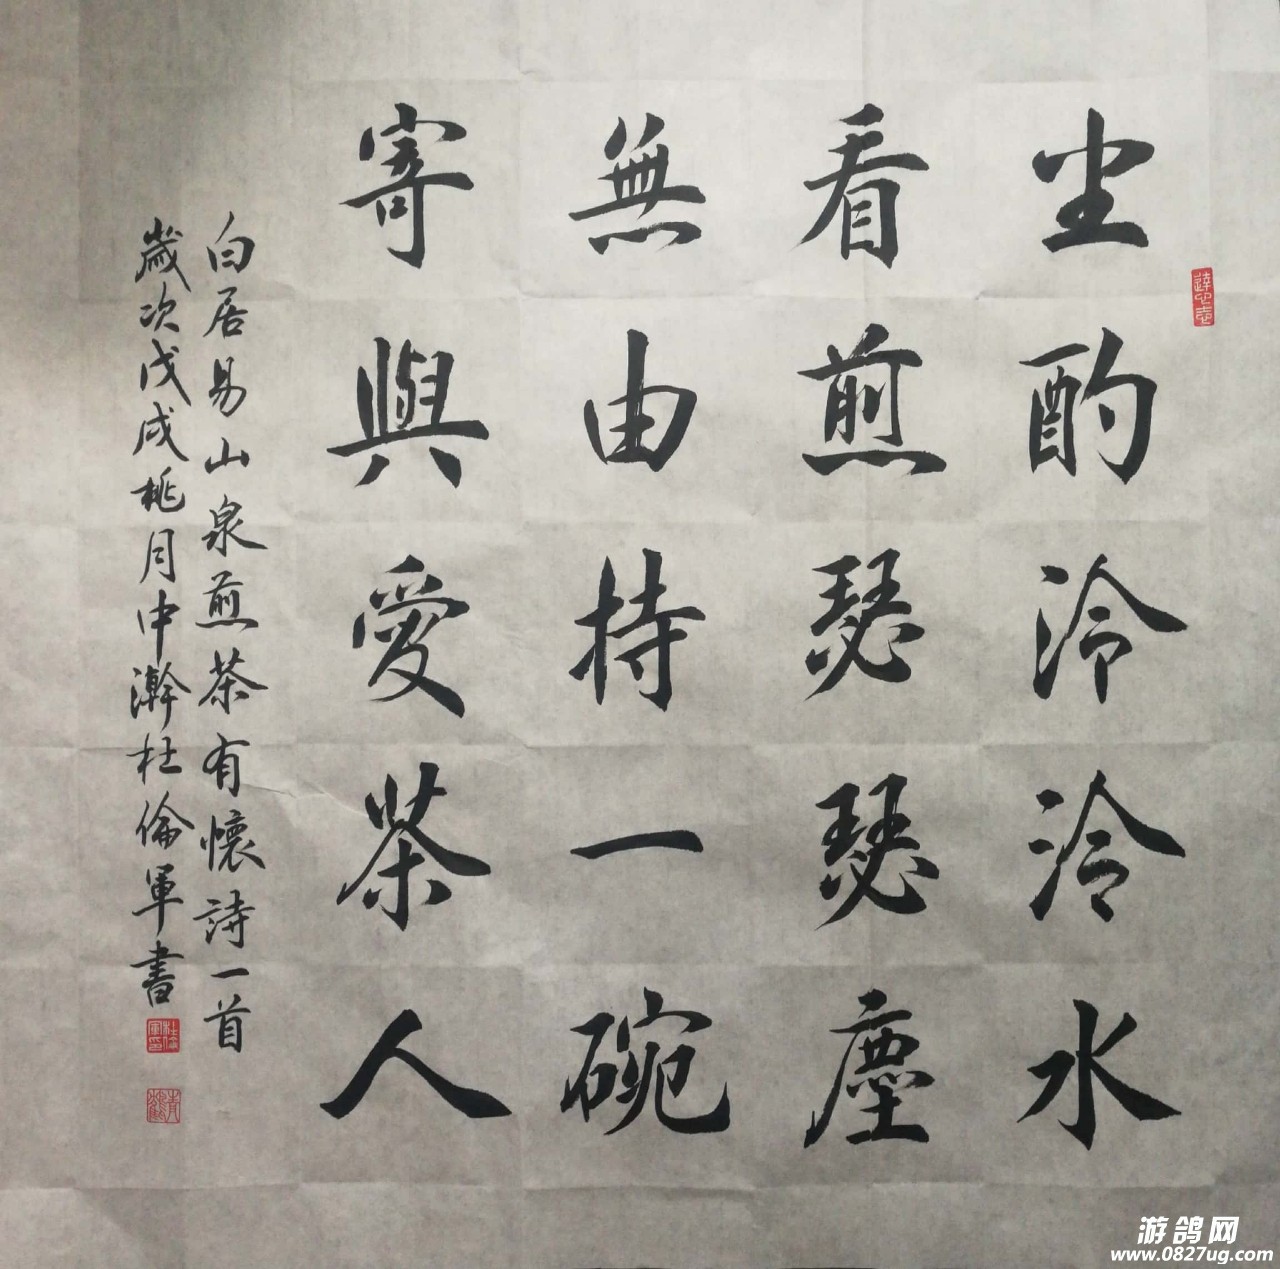 坐酌泠泠水
看煎瑟瑟塵
無由持一碗
寄與愛茶人
白居易山泉煎茶有懷詩一首
歲次戊戌桃月中澣杜倫軍書
游鸽网
www.0827ug.com